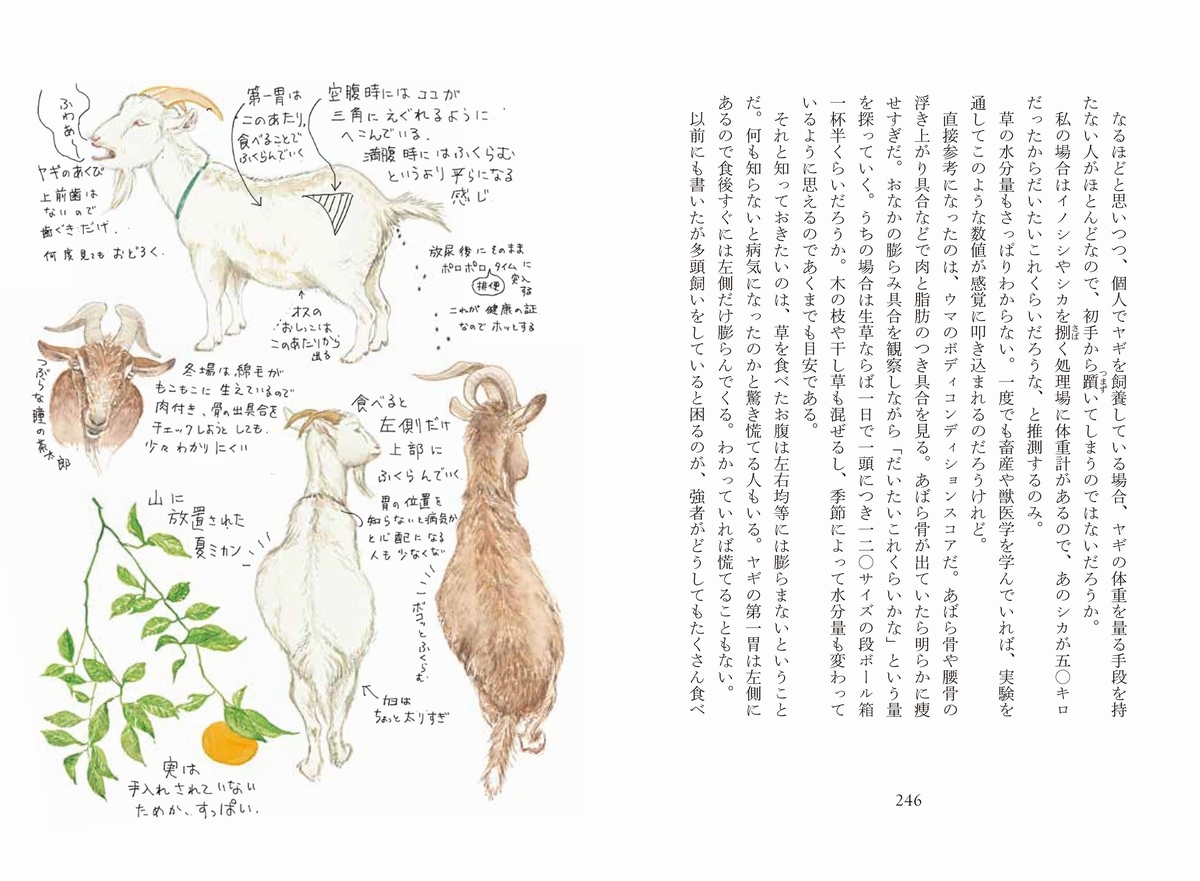 なるほどと思いつつ、個人でヤギを飼養している場合、ヤギの体重を量る手段を持
たない人がほとんどなので、初手から躓いてしまうのではないだろうか。
私の場合はイノシシやシカを捌く処理場に体重計があるので、あのシカが五〇キロ
だったからだいたいこれくらいだろうな、と推測するのみ。
草の水分量もさっぱりわからない。一度でも畜産や獣医学を学んでいれば、実験を
通してこのような数値が感覚に叩き込まれるのだろうけれど。
直接参考になったのは、ウマのボディコンディションスコアだ。あばら骨や腰骨の
浮き上がり具合などで肉と脂肪のつき具合を見る。あばら骨が出ていたら明らかに痩
せすぎだ。おなかの膨らみ具合を観察しながら「だいたいこれくらいかな」という量
を探っていく。うちの場合は生草ならば一日で一頭につき一二〇サイズの段ボール箱
一杯半くらいだろうか。木の枝や干し草も混ぜるし、季節によって水分量も変わって
いるように思えるのであくまでも目安である。
それと知っておきたいのは、草を食べたお腹は左右均等には膨らまないということ
だ。何も知らないと病気になったのかと驚き慌てる人もいる。ヤギの第一胃は左側に
あるので食後すぐには左側だけ膨らんでくる。わかっていれば慌てることもない。
以前にも書いたが多頭飼いをしていると困るのが、強者がどうしてもたくさん食べ
246
ふわあ〜
ヤギのあくび
上前歯は
ないので
歯ぐきだけ.
何度見ても おどろく.
第一胃は
このあたり,
食べることで
ふくらんでいく
空腹時には ココが
三角に えぐれるように
へこんでいる.
満腹時に はふくらむ
というより 平らになる
感じ
放尿後に そのまま
ポロポロ タイムに
排便
突入
する
これが 健康の証
なので ホッとする
オスの
おしっこは
このあたりから
出る
つぶらな瞳の茶太郎
冬場は、綿毛が
もこもこに 生えているので
肉付き、骨の出具合を
チェックしようと しても、
少々 わかり にくい
食べると
左側だけ
上部に
ふくらんでいく
胃の 位置を
知らないと病気か
と心配になる
人も 少なくない
ボコっとふくらむ
カヨは
ちょっと 太りすぎ
山に
放置された
夏ミカン
実は
手入れされていない
ためか、すっぱい.